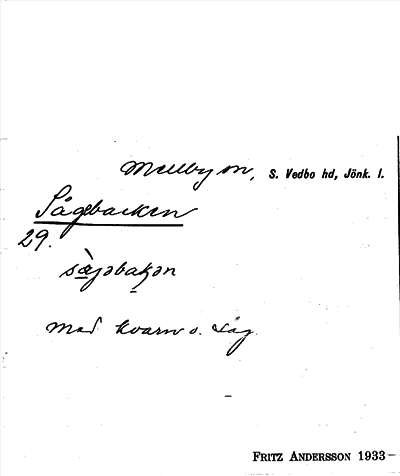 Mellby sn, S. Vedbo hd, Jönk. l.
Sågbacken
29.
sàgəbakən
med kvarn o. såg.
FRITZ ANDERSSON 1933–